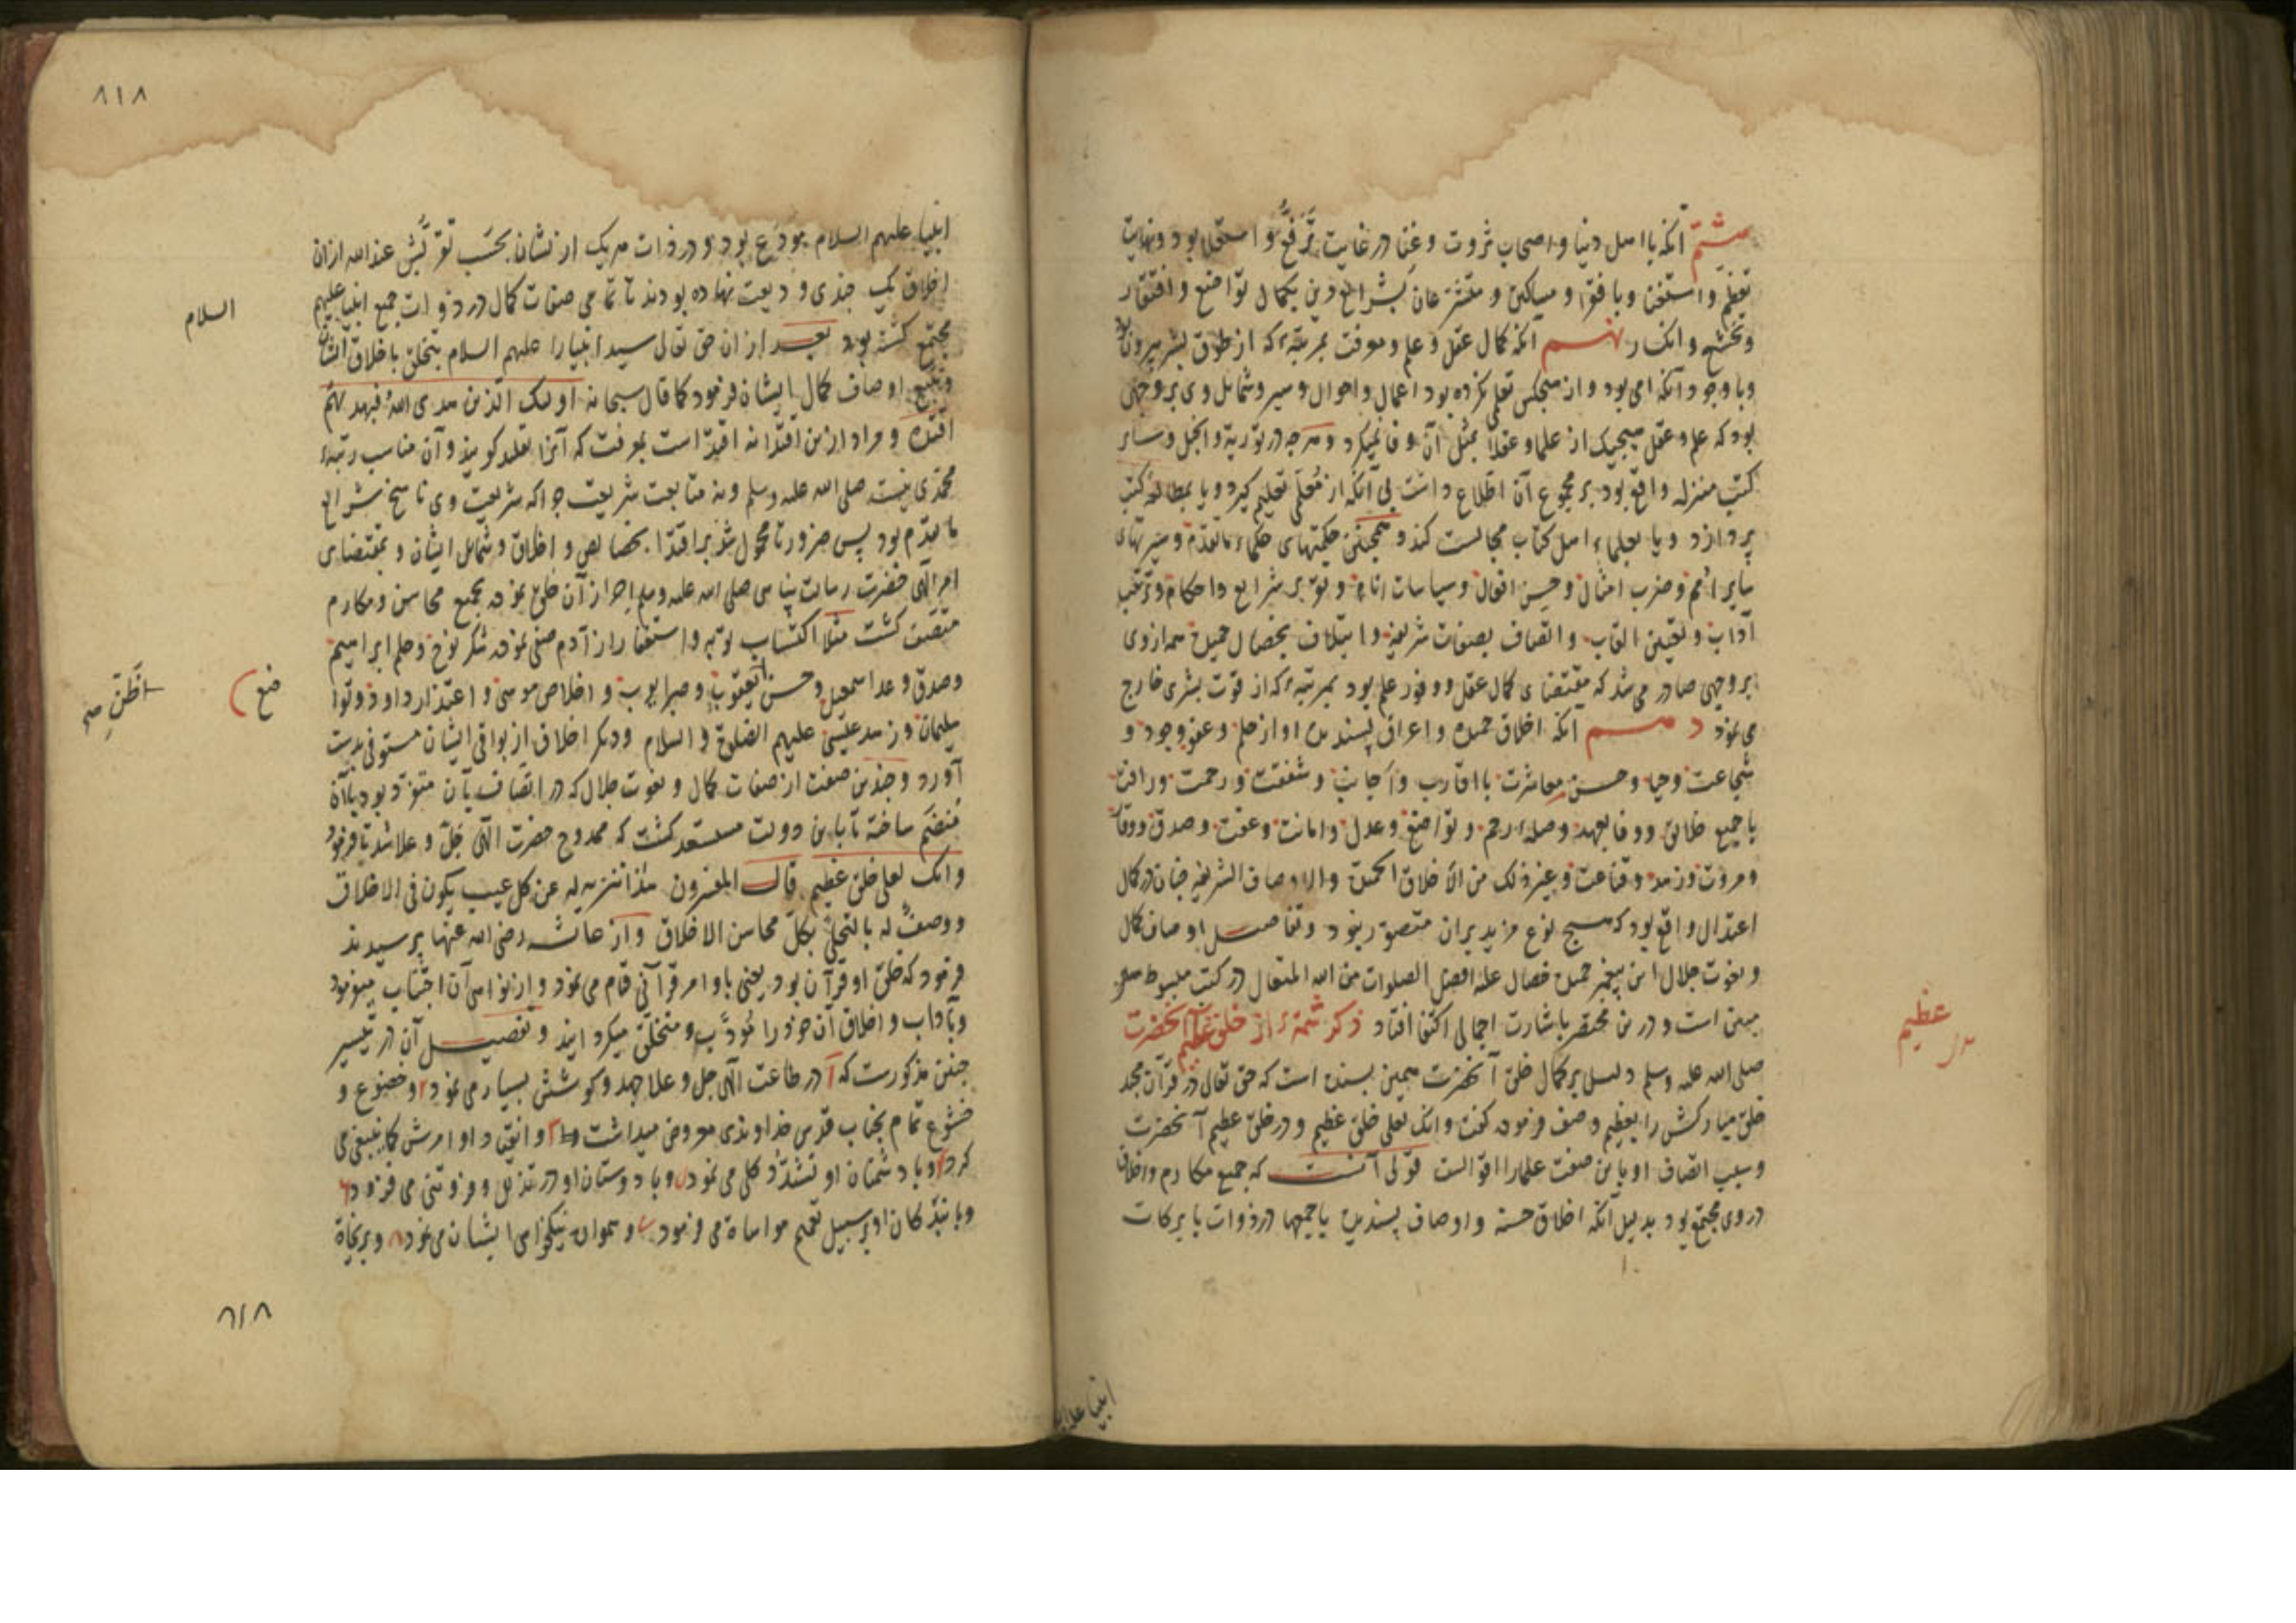 هشتم آنکه با اهل دنیا و اصحاب ثروت و غنا در غایت ترفّع و استعلا بود و نهایت
تعظّم و استغنا و با فقرا و مساکین و متشرعان بشرایع دین بکمال تواضع و افتقار
و تخشع و انکسار نهم آنکه کمال عقل و علم و معرفت بمرتبهٔ که از طوق بشر بیرون بود
و با وجود آنکه امی بود و از هیچکس تعلم نکرده بود اعمال و احوال و سیر و شمایل وی بر وجهی
بود که علم و عقل هیچیک از علما و عقلا بمثل آن وفا نمیکرد و هرچه در توریة و انجیل و سایر
کتب منزله واقع بود بر مجموع آن اطلاع داشت بی آنکه از معلمی تعلیم گیرد و یا بمطالعه کتب
پردازد و یا بعلماء اهل کتاب مجالست کند و همچنین حکمتهای حکماء ما تقدم و سیرتهای
سایر امم و ضرب امثال و حسن افعال و سیاسات انام و تقریر شرایع و احکام و ترتیب
آداب و تعیین القاب و اتصاف بصفات شریفه و ایتلاف بخصال جمیل همه از وی
بر وجهی صادر می شد که مقتضای کمال عقل و وفور علم بود بمرتبهٔ که از قوت بشری خارج
می نمود دهم آنکه اخلاق حمیده و اعراق پسندیده او از حلم و عفو و جود و
شجاعت و حیا و حسن معاشرت با اقارب و اجانب و شفقت و رحمت و رافت
با جمیع خلایق و وفا بعهد و صلهٔ رحم و تواضع و عدل و امانت و عفت و صدق و وقار
و مروت و زهد و قناعت و غیر ذلک من الاخلاق الحمیدة والاوصاف الشریفه چنان در کمال
اعتدال واقع بود که هیچ نوع مزید بر ان متصور نبود و تفاصیل اوصاف کمال
و نعوت جلال این پیغمبر جمیل خصال علیه افضل الصلوات من الله المتعال در کتب مبسوطه
مبین است و درین مختصر باشارت اجمالی اکتفا افتاد ذکر شمهٔ از خلق عظیم آنحضرت
صلی الله علیه وسلم دلیل بر کمال خلق آنحضرت همین بسنده است که حق تعالی در قرآن مجید
خلق مبارکش را بعظیم وصف فرموده گفت وانک لعلی خلق عظیم و در خلق عظیم آنحضرت
و سبب اتصاف او باین صفت علما را اقوالست قولی آنست که جمیع مکارم و اخلاق
در وی مجتمع بود بدلیل آنکه اخلاق حسنه و اوصاف پسندیده باجمعها در ذوات با برکات
عظیم
انبیا علیه
۸۱۸
انبیا علیهم السلام مودع بود و در ذات هر یک از ایشان بحسب تقربش عند الله از ان
اخلاق یک چندی ودیعت نهاده بودند تا تمامی صفات کمال در ذوات جمیع انبیا علیهم
السلام
مجتمع گشته بود بعد از ان حق تعالی سید انبیا را علیهم السلام بتخلق باخلاق ایشان
و تتبع اوصاف کمال ایشان فرمود کما قال سبحانه اولئک الذین هدی الله فبهدیهم
اقتده و مراد ازین اقتدا نه اقتداست بمعرفت که آنرا تقلید گویند و آن مناسب رتبهٔ
محمدی نیست صلی الله علیه وسلم و نه متابعت شریعت چرا که شریعت وی ناسخ شرایع
ما تقدم بود پس ضرورتا محمول شد بر اقتدا بخصایص و اخلاق و شمایل ایشان و بمقتضای
امر الهی حضرت رسالت پناهی صلی الله علیه وسلم احراز آن خلق نموده بجمیع محاسن و مکارم
متصف گشت مثلا اکتساب توبه و استغفار از آدم صفی نموده شکر نوح و حلم ابراهیم
وصدق وعد اسمعیل و حسن الظن یعقوب و صبر ایوب و اخلاص موسی و اعتذار داود و تواضع
سلیمان و زهد عیسی علیهم الصلوة و السلام و دیگر اخلاق از بواقی ایشان مستوفی بدست
آورد و چندین صفت از صفات کمال و نعوت جلال که در اتصاف بآن متفرد بود با آن
منضم ساخته تا باین دولت مستسعد گشت که ممدوح حضرت الهی جل و علا شد تا فرمود
وانک لعلی خلق عظیم قال المفسرون هذا تنزیه له عن کل عیب یکون فی الاخلاق
ووصف له بالتحلی بکل محاسن الاخلاق و از عایشه رضی الله عنها پرسیدند
فرمود که خلق او قرآن بود یعنی باوامر قرآنی قیام می نمود و از نواهی آن اجتناب میفرمود
و بآداب و اخلاق آن خود را مودب و متخلق میگردانید و تفصیل آن در تیسیر
چنین مذکورست که ۱ در طاعت الهی جل و علا جهد و کوشش بسیار می نمود ۲ و خضوع و
خشوع تمام بجناب قدس خداوندی معروض میداشت ۳ و انقیاد اوامرش کما ینبغی می
کرد ۴ و با دشمنان او تشدد کلی می نمود ۵ و با دوستان او در تذلل و فروتنی می فزود ۶
و با بندگان او بر سبیل تعمیم مواساة می فرمود ۷ و هموا‌ره نیکخواهی ایشان می نمود ۸ و بر نجاة
الظن صح
ضع
۸۱۸